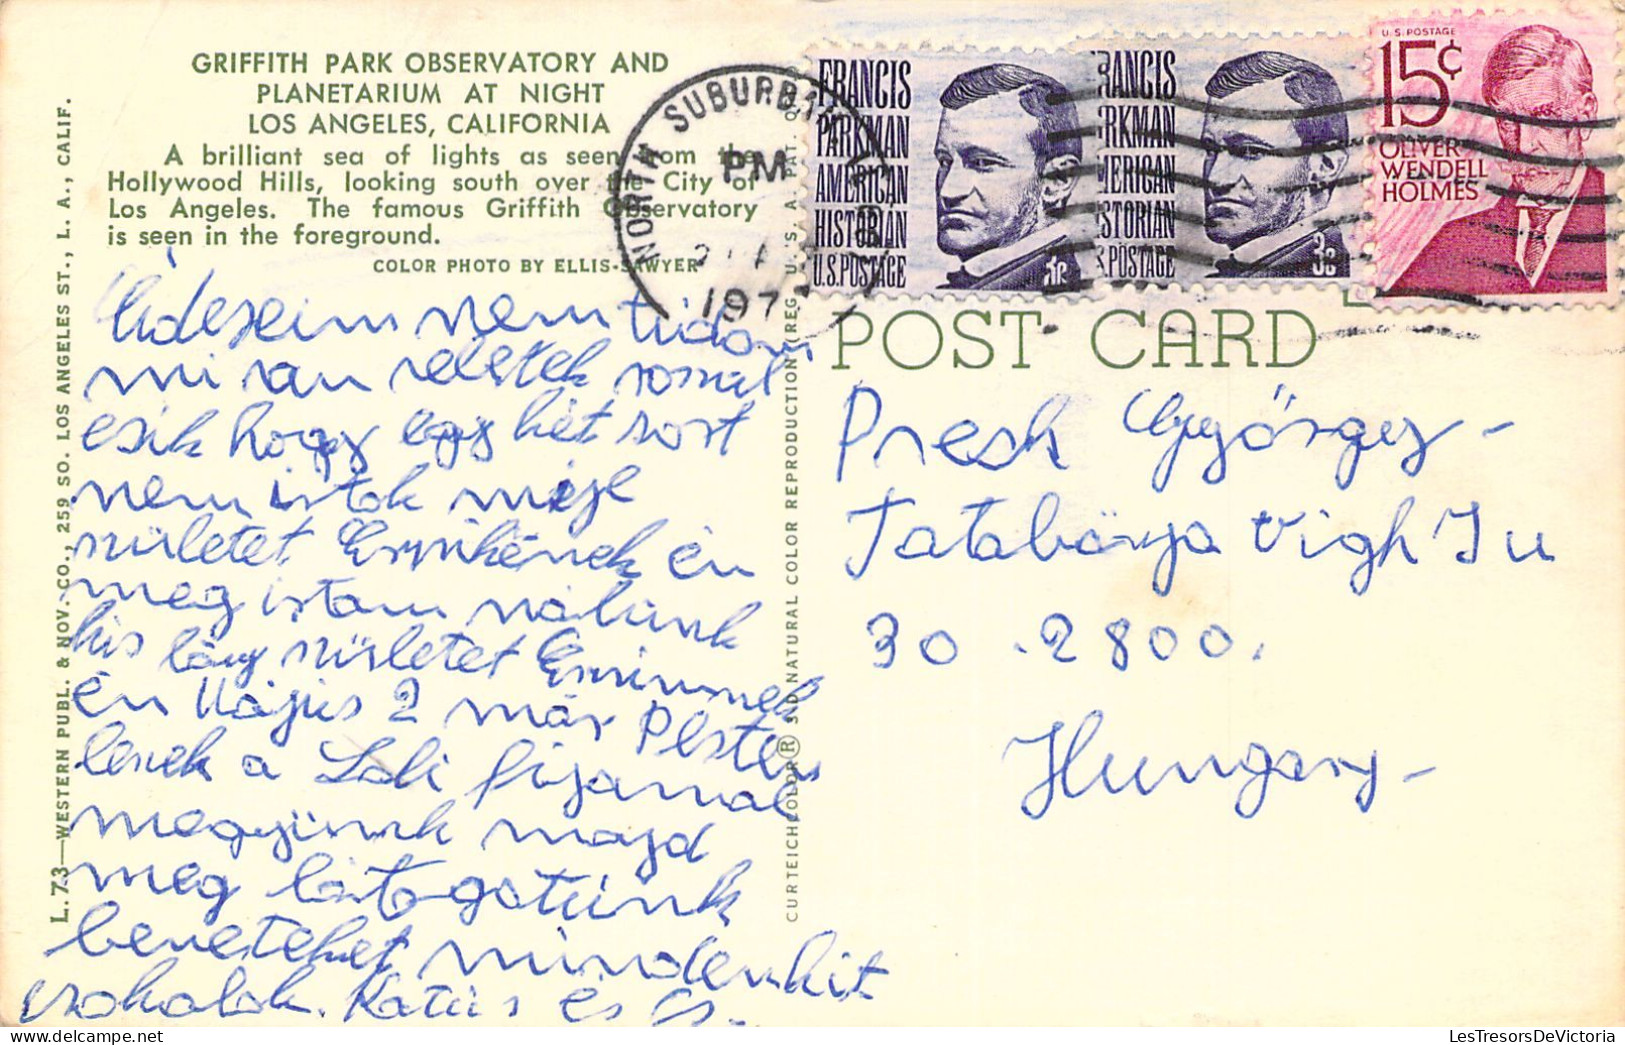 GRIFFITH PARK OBSERVATORY AND
PLANETARIUM AT NIGHT
LOS ANGELES, CALIFORNIA
A brilliant sea of lights as seen from the
Hollywood Hills, looking south over the City of
Los Angeles. The famous Griffith Observatory
is seen in the foreground.
COLOR PHOTO BY ELLIS-SAWYER
L.73—WESTERN PUBL. & NOV. CO., 259 SO. LOS ANGELES ST., L. A., CALIF.
Édeseim nem tudom
mi van veletek rosszul
esik hogy egy hét sort
nem irtok
születet Emmikének én
meg irtam nálunk
kis lány születet Emminek
én Május 2 már Pesten
leszek a Lali fijamal
megyünk majd
meg látogatünk
benetehet mindenkit
csokolok. Katus és
CURTEICHCOLOR® 3-D NATURAL COLOR REPRODUCTION (REG. U. S. A. PAT. O
NORTH SUBURBAN
PM
197
FRANCIS
PARKMAN
AMERICAN
HISTORIAN
U.S. POSTAGE
3c
RANCIS
RKMAN
MERICAN
STORIAN
S. POSTAGE
3c
U.S. POSTAGE
15¢
OLIVER
WENDELL
HOLMES
POST CARD
Presk György-
Tatabánya Vigh Iu
30 . 2800.
Hungary-
LesTresorsDeVictoria.com